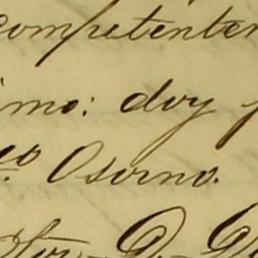 competenten
imo: doy f
co Osorno.